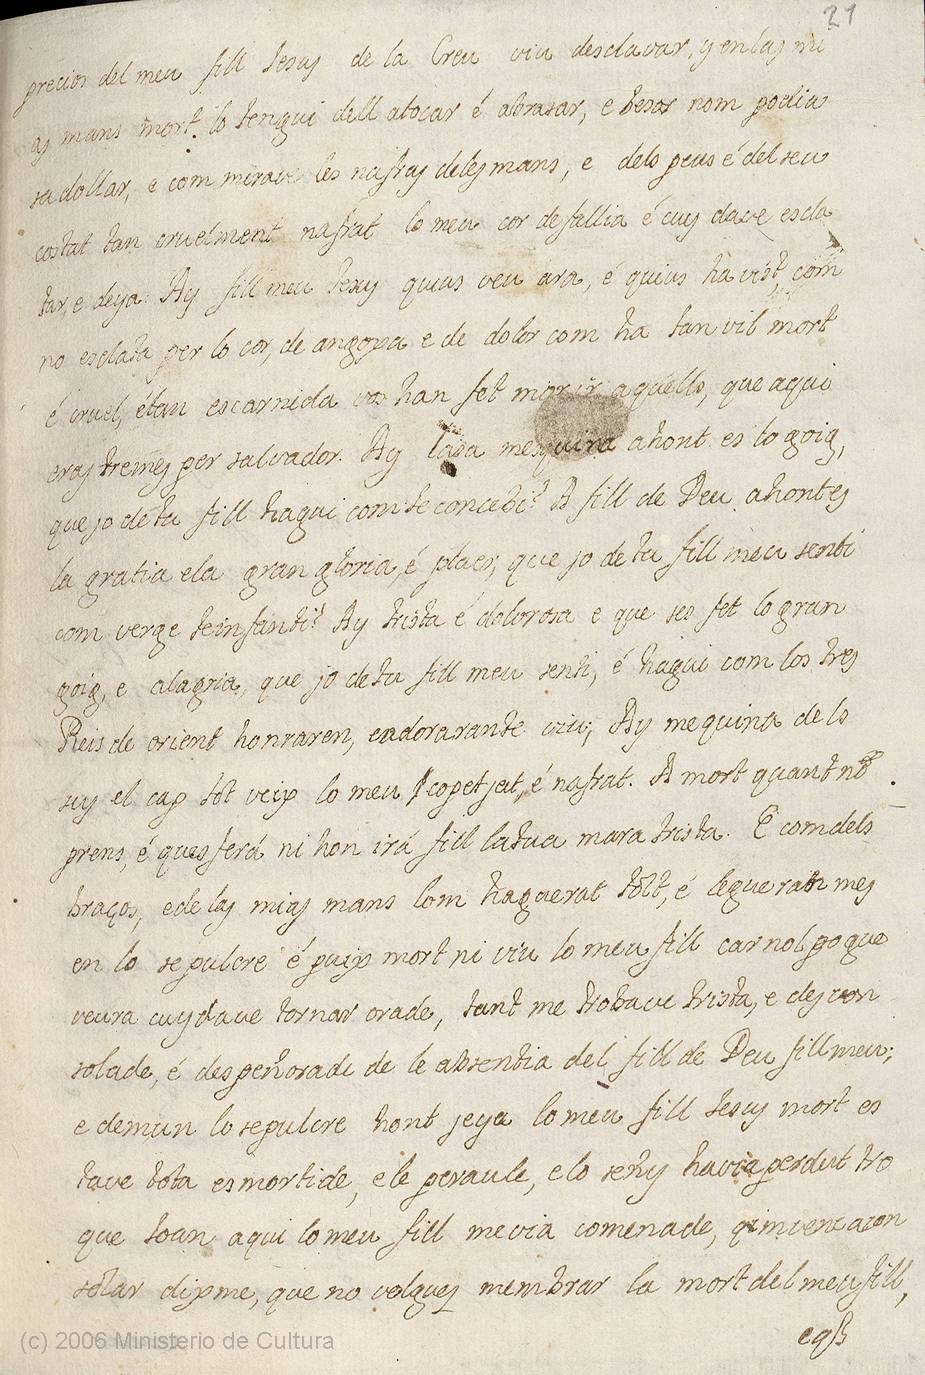 21
precios del meu fill Jesus de la Creu viu desclavar, y en las mi
as mans mort lo tengui dell atocar é abrasar, e besar nom podia
sadollar, e com mirave les nafras deles mans, e dels peus é del seu
costat tan cruelment nafrat lo meu cor desfallia é cuydave escla
tar, e deya: Ay fill meu Jesus quius veu ara, é quius ha vist, com
no esclata per lo cor, de angoxa e de dolor com ha tan vil mort
é cruel, é tan escarnida vos han fet morir aquells, que aqui
eras tremes per salvador. Ay lasa mesquina ahont es lo goig,
que jo de tu fill hagui com te concebi? A fill de Deu ahont es
la gratia e la gran gloria, é plaer, que jo de tu fill meu senti
com verge te infanti? Ay trista é dolorosa e que ses fet lo gran
goig, e alagria, que jo de tu fill meu senti, é hagui com los tres
Reis de orient honraren, e adorarante viu; Ay mequina de lo
sus el cap tot veix lo meu copetjat, é nafrat. A mort quant no
prens, é ques ferá ni hon irá fill la tua mara trista. E com dels
braços, e de las mias mans lom haguerat tolt, é legueran mes
en lo sepulcre é puix mort ni viu lo meu fill car nol pogue
veura cuydave tornar orade, tant me trobave trista, e descon
solade, é despeñorade de le absentia del fill de Deu fill meu;
e demun lo sepulcre hont jeya lo meu fill Jesus mort es
tave tota esmortide, e le peraule, e lo señy havia perdut tro
que Joan aqui lo meu fill mevia comenade, qim vene acon
solar dixme, que no volgues membrar la mort del meu fill,
(c) 2006 Ministerio de Cultura